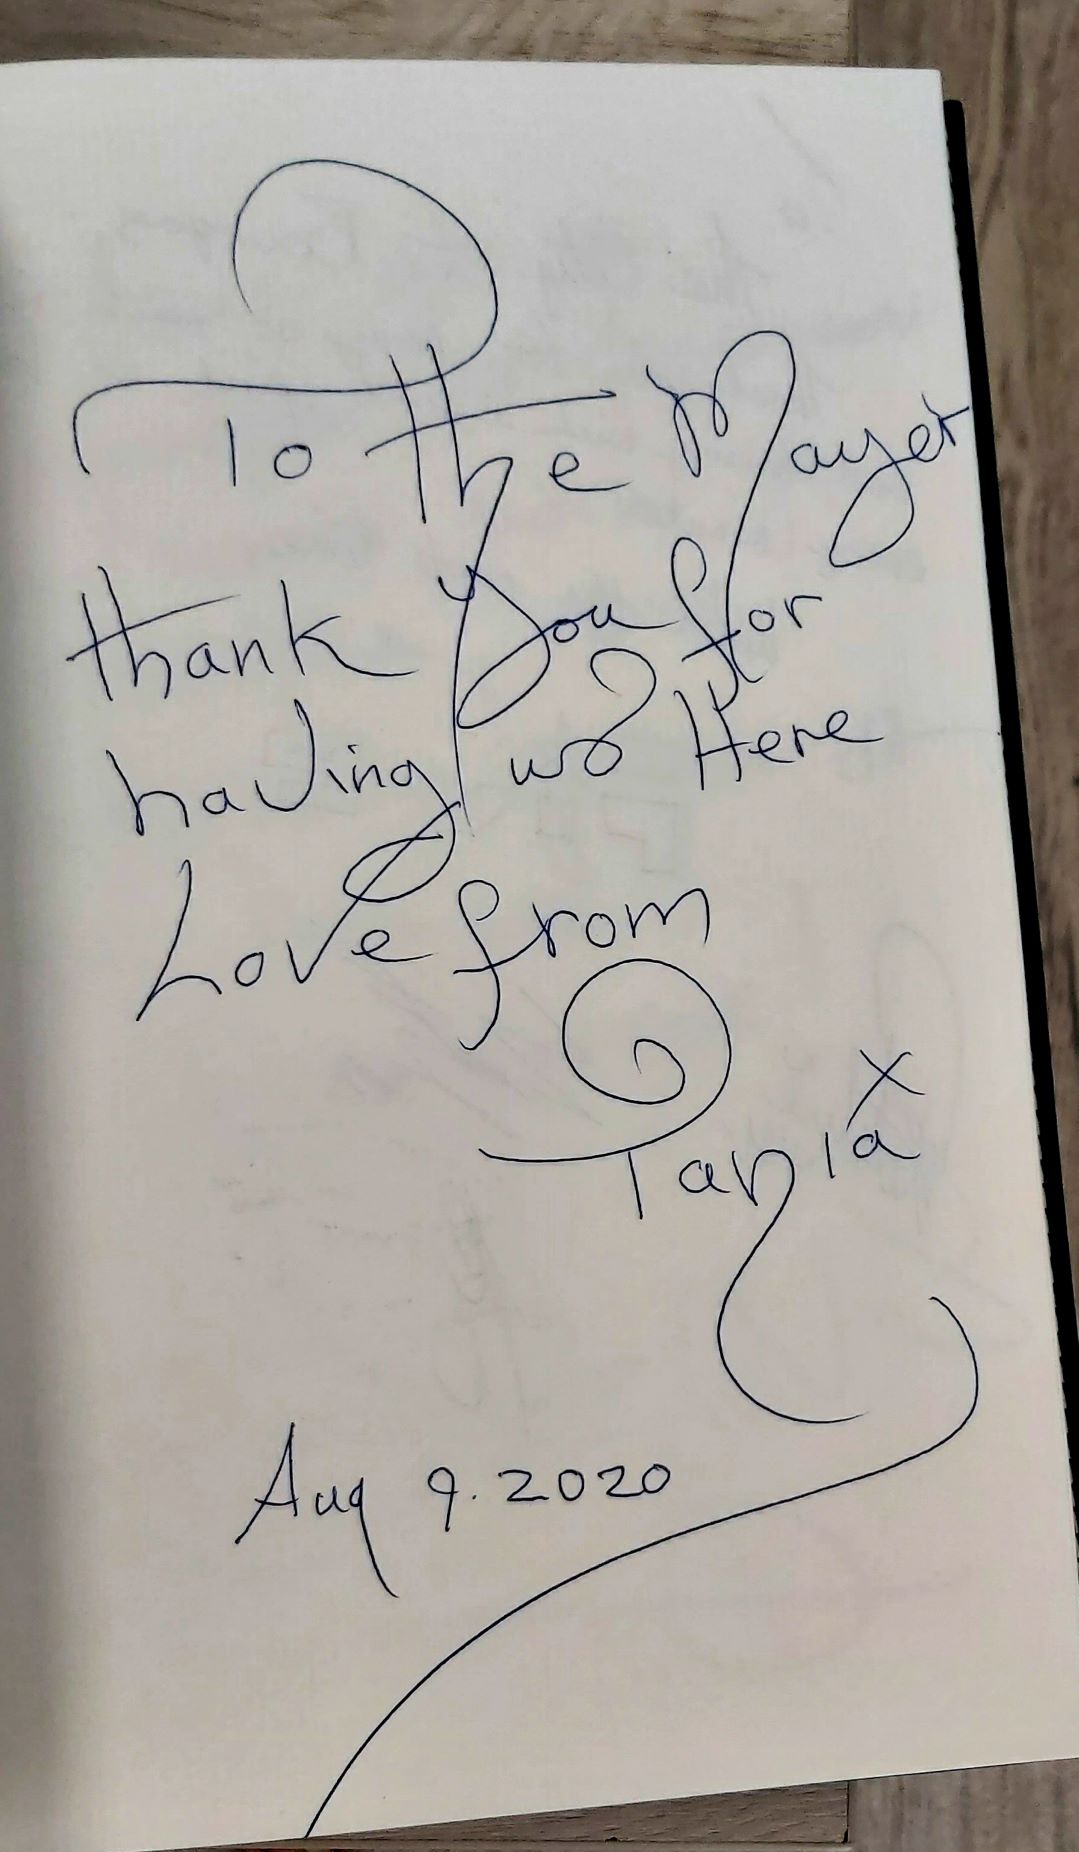 To the Mayer
thank you for
having us Here
Love from
Tania x
Aug 9.2020